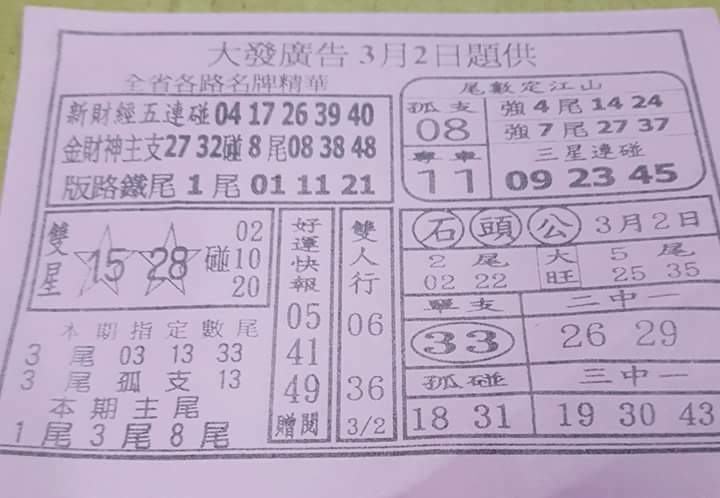 大發廣告 3月2日題供
全省各路名牌精華
新財經五連碰 04 17 26 39 40
金財神主支 27 32 碰 8 尾 08 38 48
版路鐵尾 1 尾 01 11 21
尾數定江山
孤支
08
強 4 尾 14 24
強 7 尾 27 37
專車
11
三星連碰
09 23 45
雙星
15 28 碰
02
10
20
本期指定數尾
3 尾 03 13 33
3 尾 孤 支 13
本期主尾
1 尾 3 尾 8 尾
好運快報
05
41
49
贈閱
雙人行
06
36
3/2
石頭公 3月2日
2 尾
02 22
大旺
5 尾
25 35
單支
33
二中一
26 29
孤碰
18 31
三中一
19 30 43